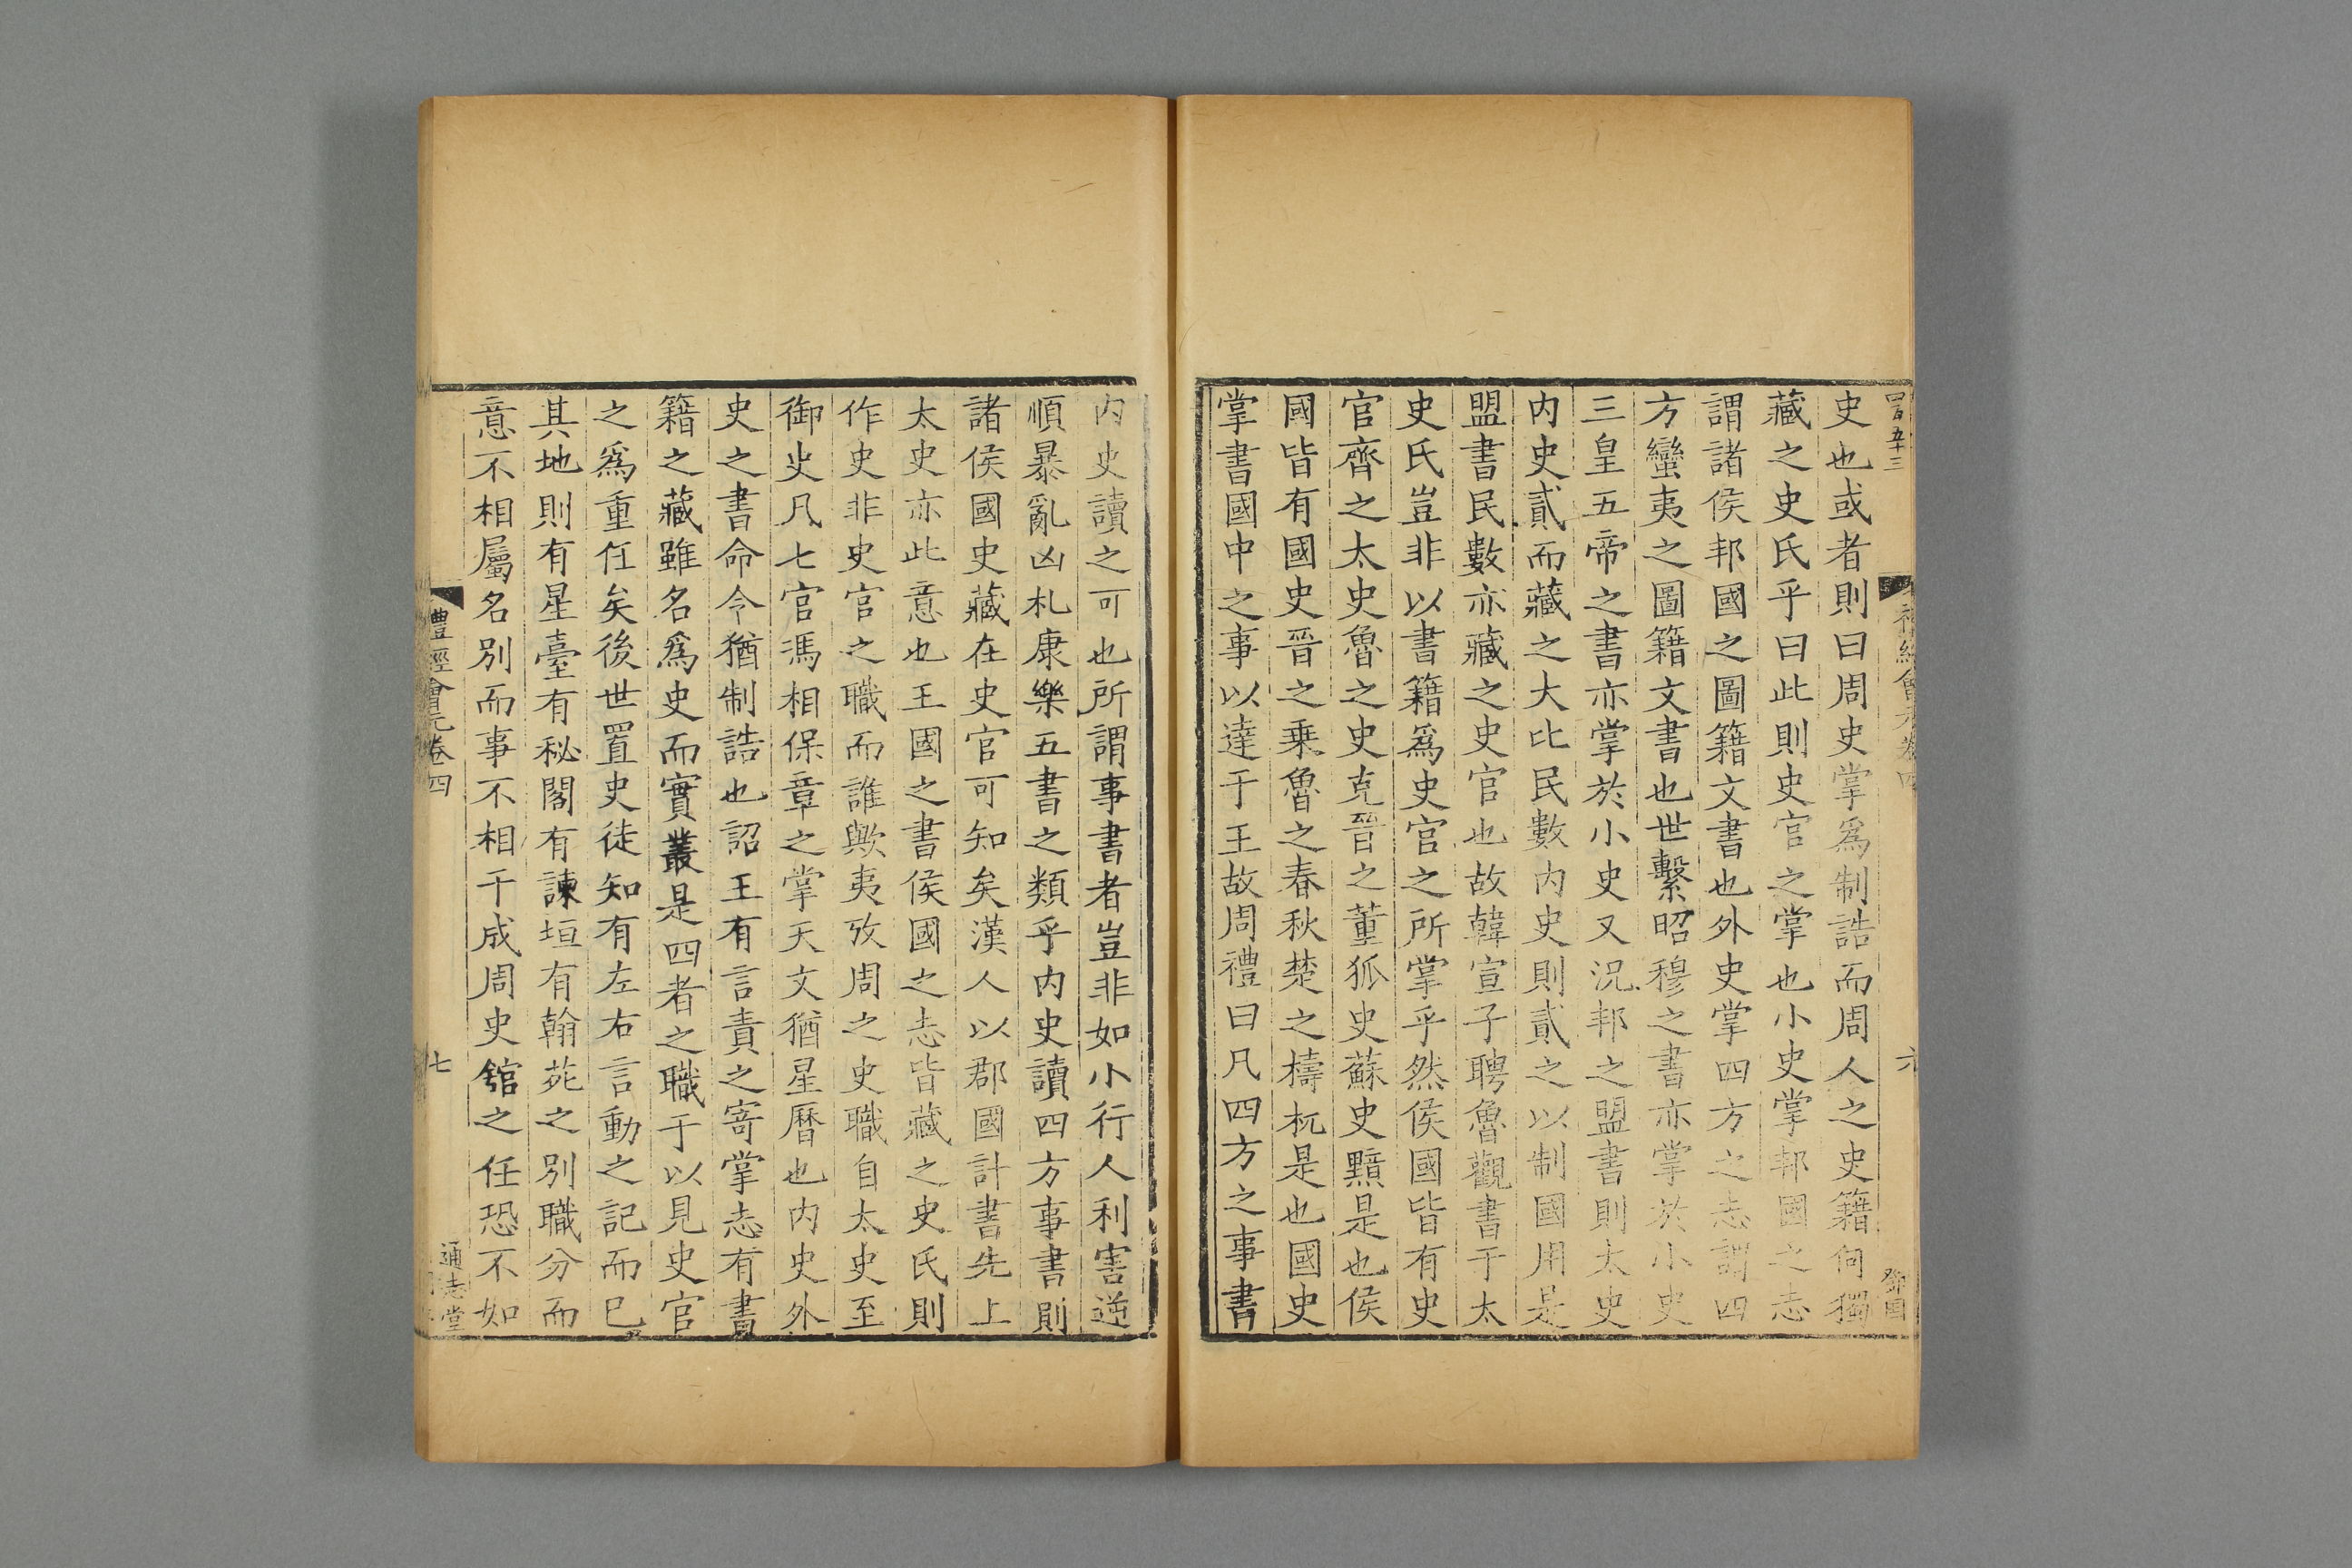 四百五十三
禮經會元卷四
六
史也或者則曰周史掌爲制誥而周人之史籍何獨
藏之史氏乎曰此則史官之掌也小史掌邦國之志
謂諸侯邦國之圖籍文書也外史掌四方之志謂四
方蠻夷之圖籍文書也世繫昭穆之書亦掌於小史
三皇五帝之書亦掌於小史又況邦之盟書則太史
内史貳而藏之大比民數内史則貳之以制國用是
盟書民數亦藏之史官也故韓宣子聘魯觀書于太
史氏豈非以書籍爲史官之所掌乎然侯國皆有史
官齊之太史魯之史克晉之董狐史蘇史黯是也侯
國皆有國史晉之乗魯之春秋楚之檮杌是也國史
掌書國中之事以達于王故周禮曰凡四方之事書
内史讀之可也所謂事書者豈非如小行人利害逆
順暴亂凶札康樂五書之類乎内史讀四方事書則
諸侯國史藏在史官可知矣漢人以郡國計書先上
太史亦此意也王國之書侯國之志皆藏之史氏則
作史非史官之職而誰歟夷攷周之史職自太史至
御史凡七官馮相保章之掌天文猶星曆也内史外
史之書命令猶制誥也詔王有言責之寄掌志有書
籍之藏雖名爲史而實叢是四者之職于以見史官
之爲重任矣後世置史徒知有左右言動之記而已
其地則有星臺有秘閣有諫垣有翰苑之別職分而
意不相屬名別而事不相干成周史舘之任恐不如
禮經會元卷四
七
通志堂